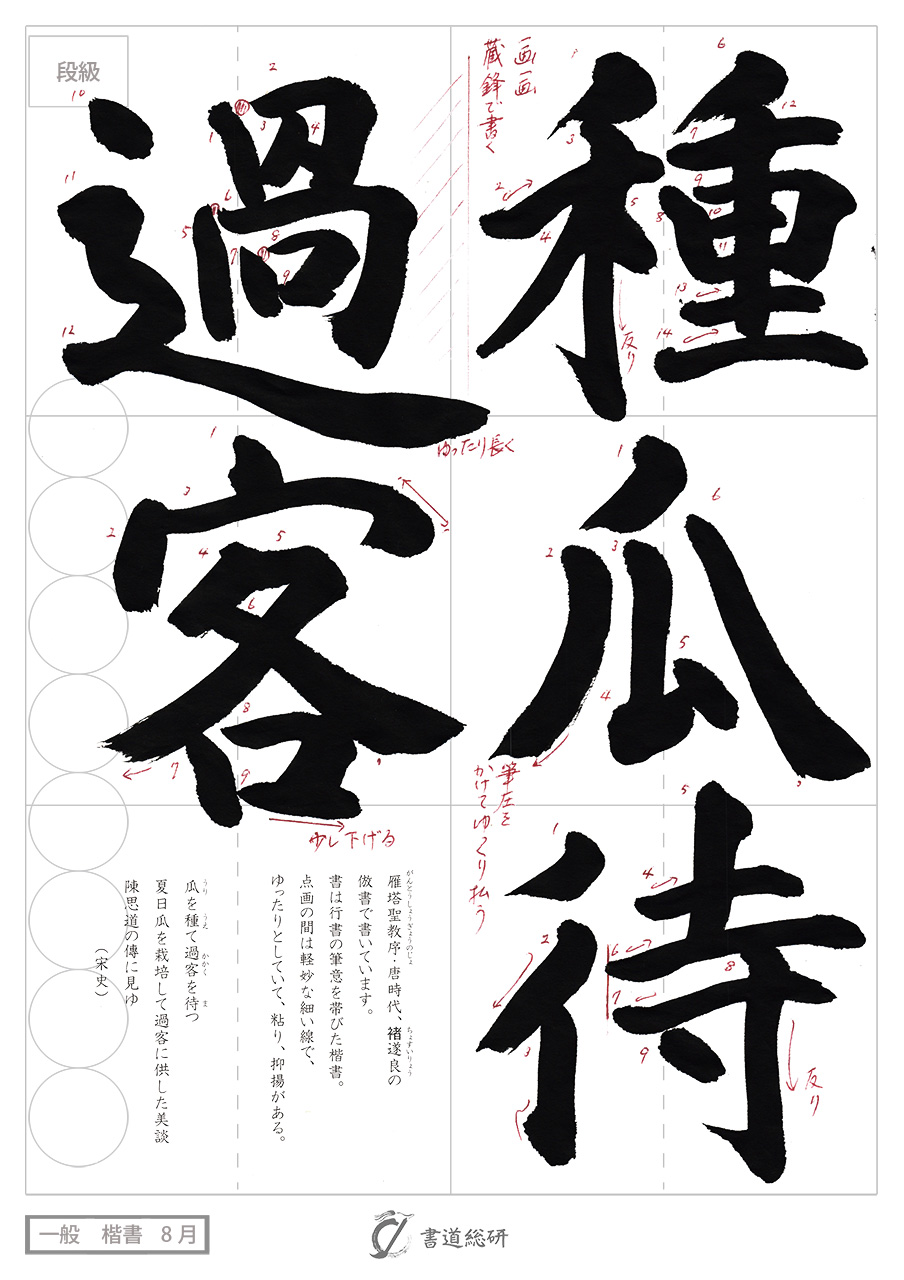 種瓜待
過客
段級
一画一画
蔵鋒で書く
反り
ゆったり長く
筆圧を
かけてゆっくり払う
少し下げる
反り
雁塔聖教序・唐時代、褚遂良の
がんとうしょうぎょうのじょ
ちょすいりょう
倣書で書いています。
書は行書の筆意を帯びた楷書。
点画の間は軽妙な細い線で、
ゆったりとしていて、粘り、抑揚がある。
瓜を種て過客を待つ
うり
うえ
かかく
ま
夏日瓜を栽培して過客に供した美談
陳思道の傳に見ゆ
（宋史）
一般 楷書 8月
書道総研